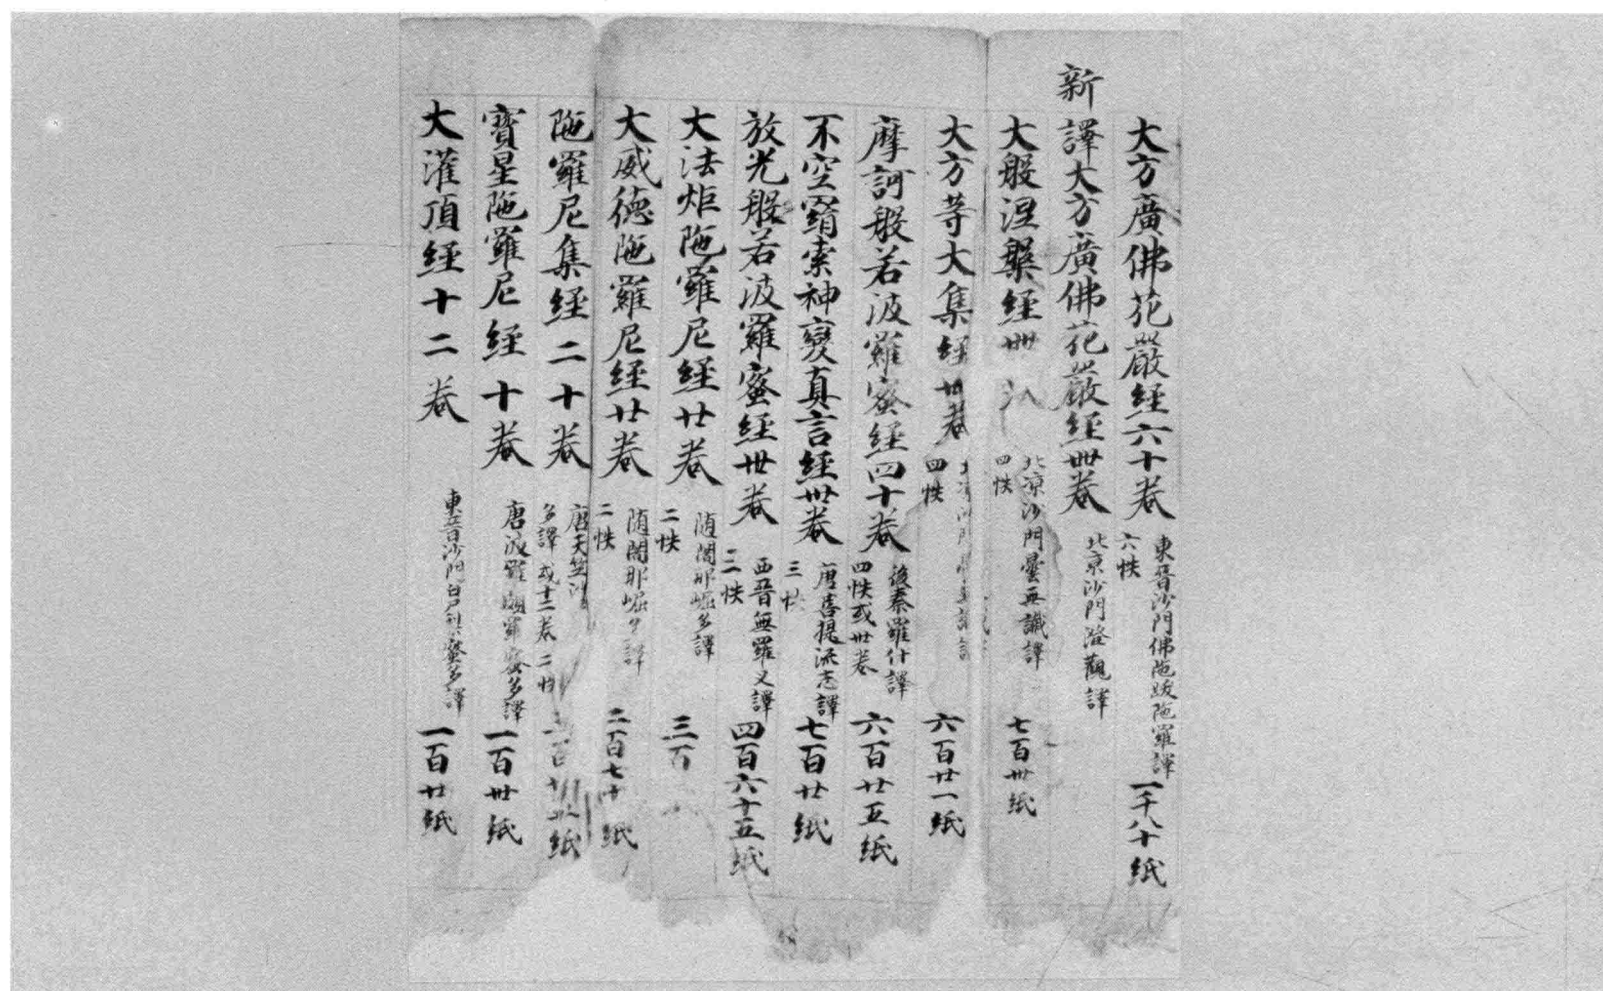 大方廣佛花嚴経六十卷 東晉沙門佛陁跋陁羅譯 六帙 一千八十紙
新譯大方廣佛花嚴経卌卷 北京沙門澄觀譯
大般涅槃経卌 北凉沙門曇无讖譯 四帙 七百卅紙
大方等大集経卅卷 四帙 六百廿一紙
摩訶般若波羅蜜経四十卷 後秦羅什譯 四帙或卅卷 六百廿五紙
不空罥索神變真言経卅卷 唐菩提流志譯 三 七百廿紙
放光般若波羅蜜経卅卷 西晉無羅叉譯 三帙 四百六十五紙
大法炬陁羅尼経廿卷 随闍那崛多譯 二帙 三百
大威德陁羅尼経廿卷 随闍那崛多譯 二帙 二百七十紙
陁羅尼集経二十卷 唐天竺沙 多譯或十二卷二 紙
寶星陁羅尼経十卷 唐波羅頗羅蜜多譯 一百卅紙
大灌頂経十二卷 東晉沙門白尸梨蜜多譯 一百廿紙